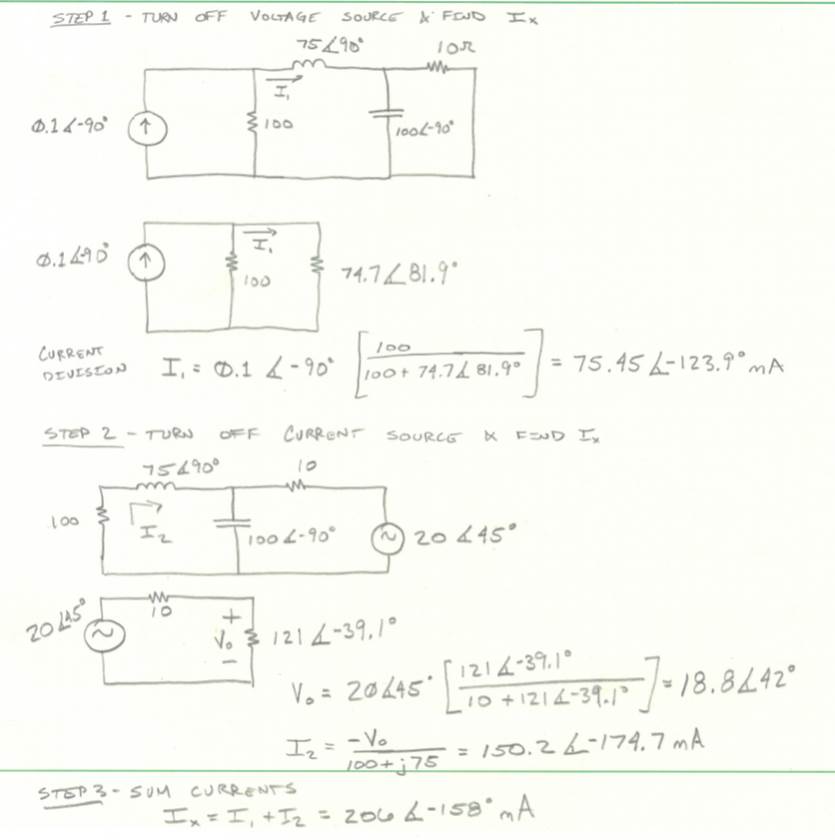 STEP 1 - TURN OFF VOLTAGE SOURCE & FIND Ix
75∡90°
10Ω
I₁
0.1∡-90°
100
100∡-90°
I₁
0.1∡90°
100
74.7∡81.9°
CURRENT DIVISION I₁ = 0.1∡-90° [100 / (100 + 74.7∡81.9°)] = 75.45∡-123.9° mA
STEP 2 - TURN OFF CURRENT SOURCE & FIND Ix
75∡90°
10
100
I₂
100∡-90°
20∡45°
20∡45°
10
+
V₀
-
121∡-39.1°
V₀ = 20∡45° [121∡-39.1° / (10 + 121∡-39.1°)] = 18.8∡42°
I₂ = -V₀ / (100+j75) = 150.2∡-174.7 mA
STEP 3 - SUM CURRENTS
Ix = I₁ + I₂ = 206∡-158° mA